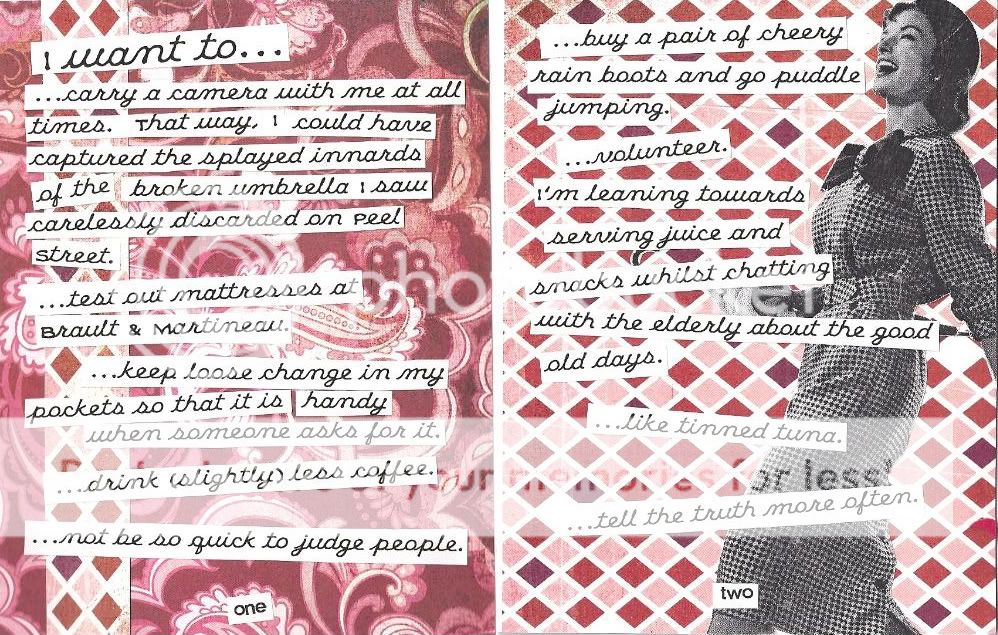 I want to...
...carry a camera with me at all
times. That way, I could have
captured the splayed innards
of the broken umbrella I saw
carelessly discarded on Peel
street.
...test out mattresses at
Brault & Martineau.
...keep loose change in my
pockets so that it is handy
when someone asks for it.
...drink (slightly) less coffee.
...not be so quick to judge people.
one
...buy a pair of cheery
rain boots and go puddle
jumping.
...volunteer.
I'm leaning towards
serving juice and
snacks whilst chatting
with the elderly about the good
old days.
...like tinned tuna.
...tell the truth more often.
two
your memories for less!